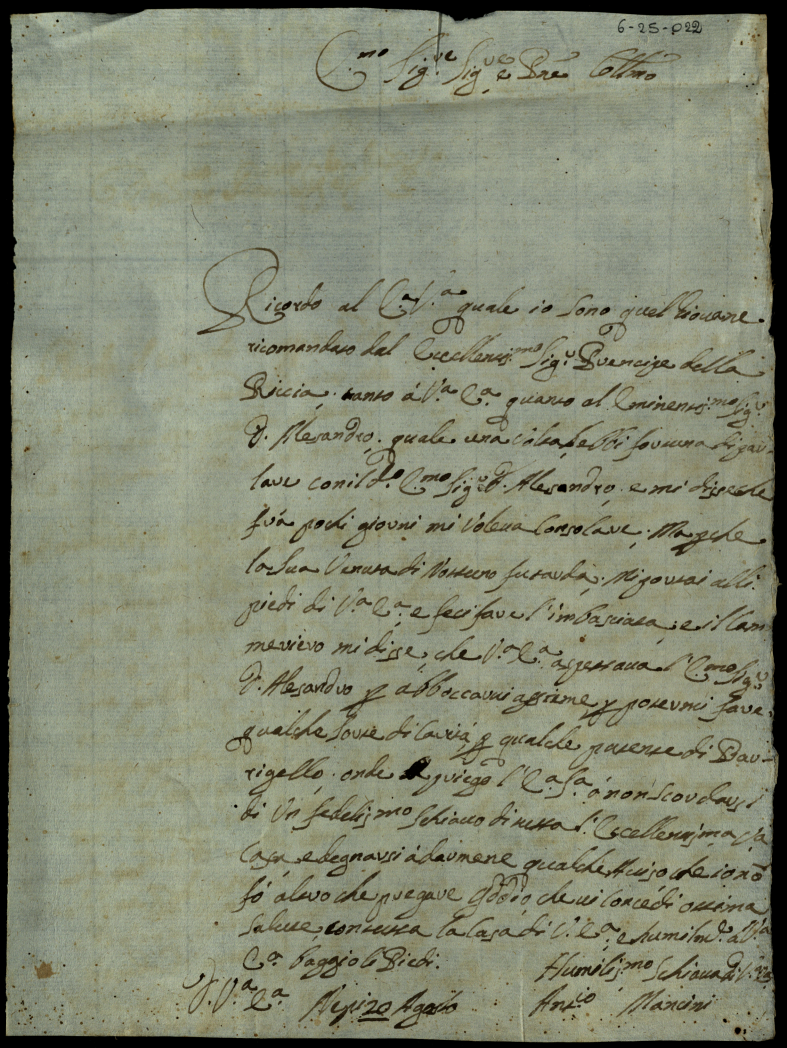 6-25-p22
E.mo Sig.re Sig.re e Pne Collmo
Ricordo al E.a V.a quale io sono quel Giovane
ricomandato dal Eccellentis.mo Sig.r Prencipe della
Riccia, tanto á V.a E.a quanto al Eminentis.mo Sig.r
D. Alesandro, quale una volta hebbi fortuna di par-
lare con il d.o E.mo Sig.r D. Alesandro, e mi disse che
frá pochi giorni mi voleva Consolare; Ma perche
la sua Venuta di Nostro si tarda; Mi portai alli
piedi di V.a E.a e feci fare l'imbasciata, e il Cam
meriero mi disse, che V.a E.a aspettava l'E.mo Sig.r
D. Alesandro p abboccarvi assieme p potermi fare
qualche sorte di Carità, p qualche patente di Bar-
rigello. onde priego l'E.a S.a á non scordarsi
di Un fedelis.mo Schiavo di tutta l'Eccellentissima Sua
Casa, e degnarsi á darmene qualche Aviso che io nō
fó altro che pregare che vi Concedi ottima
salute con tutta la Casa di V.a E.a, e humilm.e a V.a
E.a baggio li Piedi.
Humilis.mo Schiavo di V.a E.a
D. V.a E.a Nepi 20 Agosto Ant.io Mancini